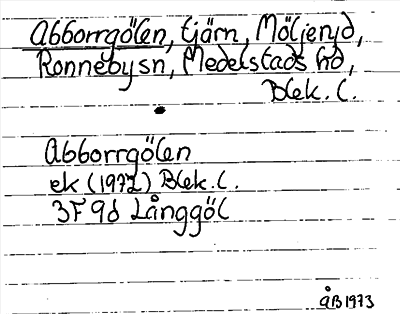 Abborrgölen, tjärn, Möljeryd,
Ronnebysn, Medelstads hd,
Blek. l.
Abborrgölen
ek (1972) Blek. l.
3F 9d Långgöl
ÅB 1973